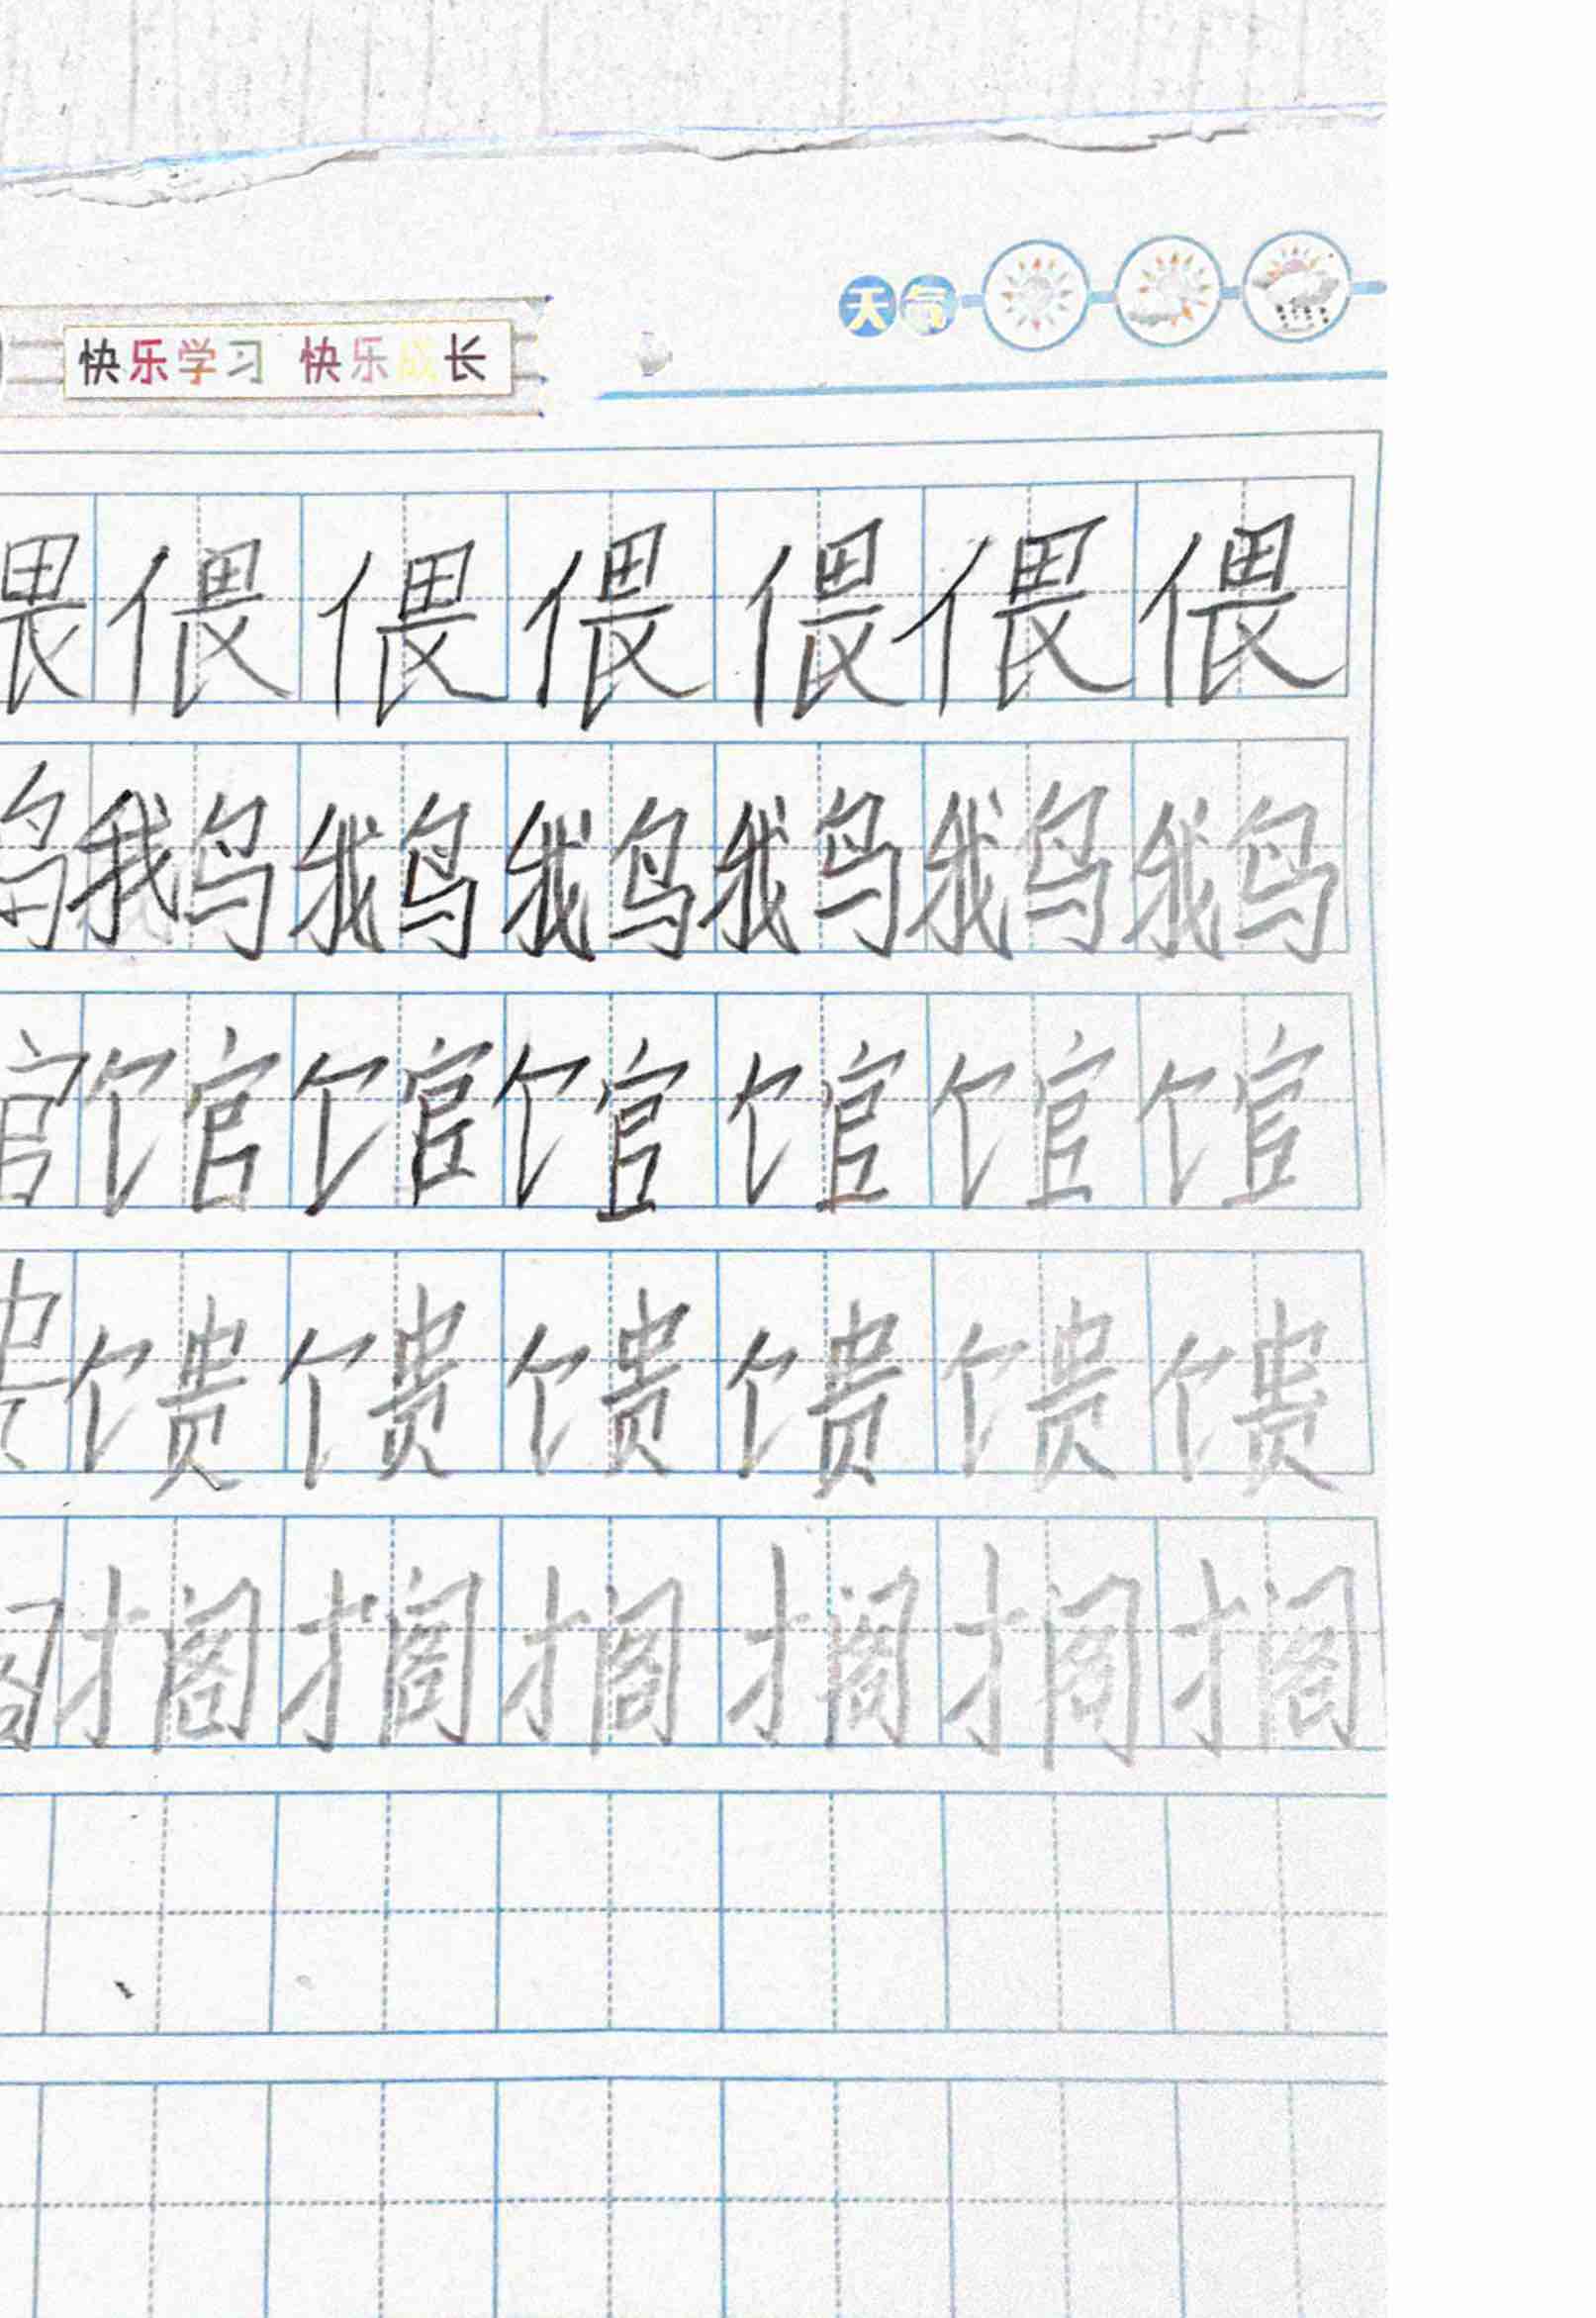 天气
快乐学习 快乐成长
偎 偎 偎 偎 偎 偎 偎
鹅 鹅 鹅 鹅 鹅 鹅
馆 馆 馆 馆 馆 馆
馈 馈 馈 馈 馈 馈
搁 搁 搁 搁 搁 搁